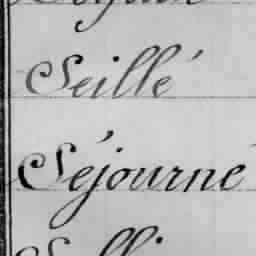 Seillé
Séjourné